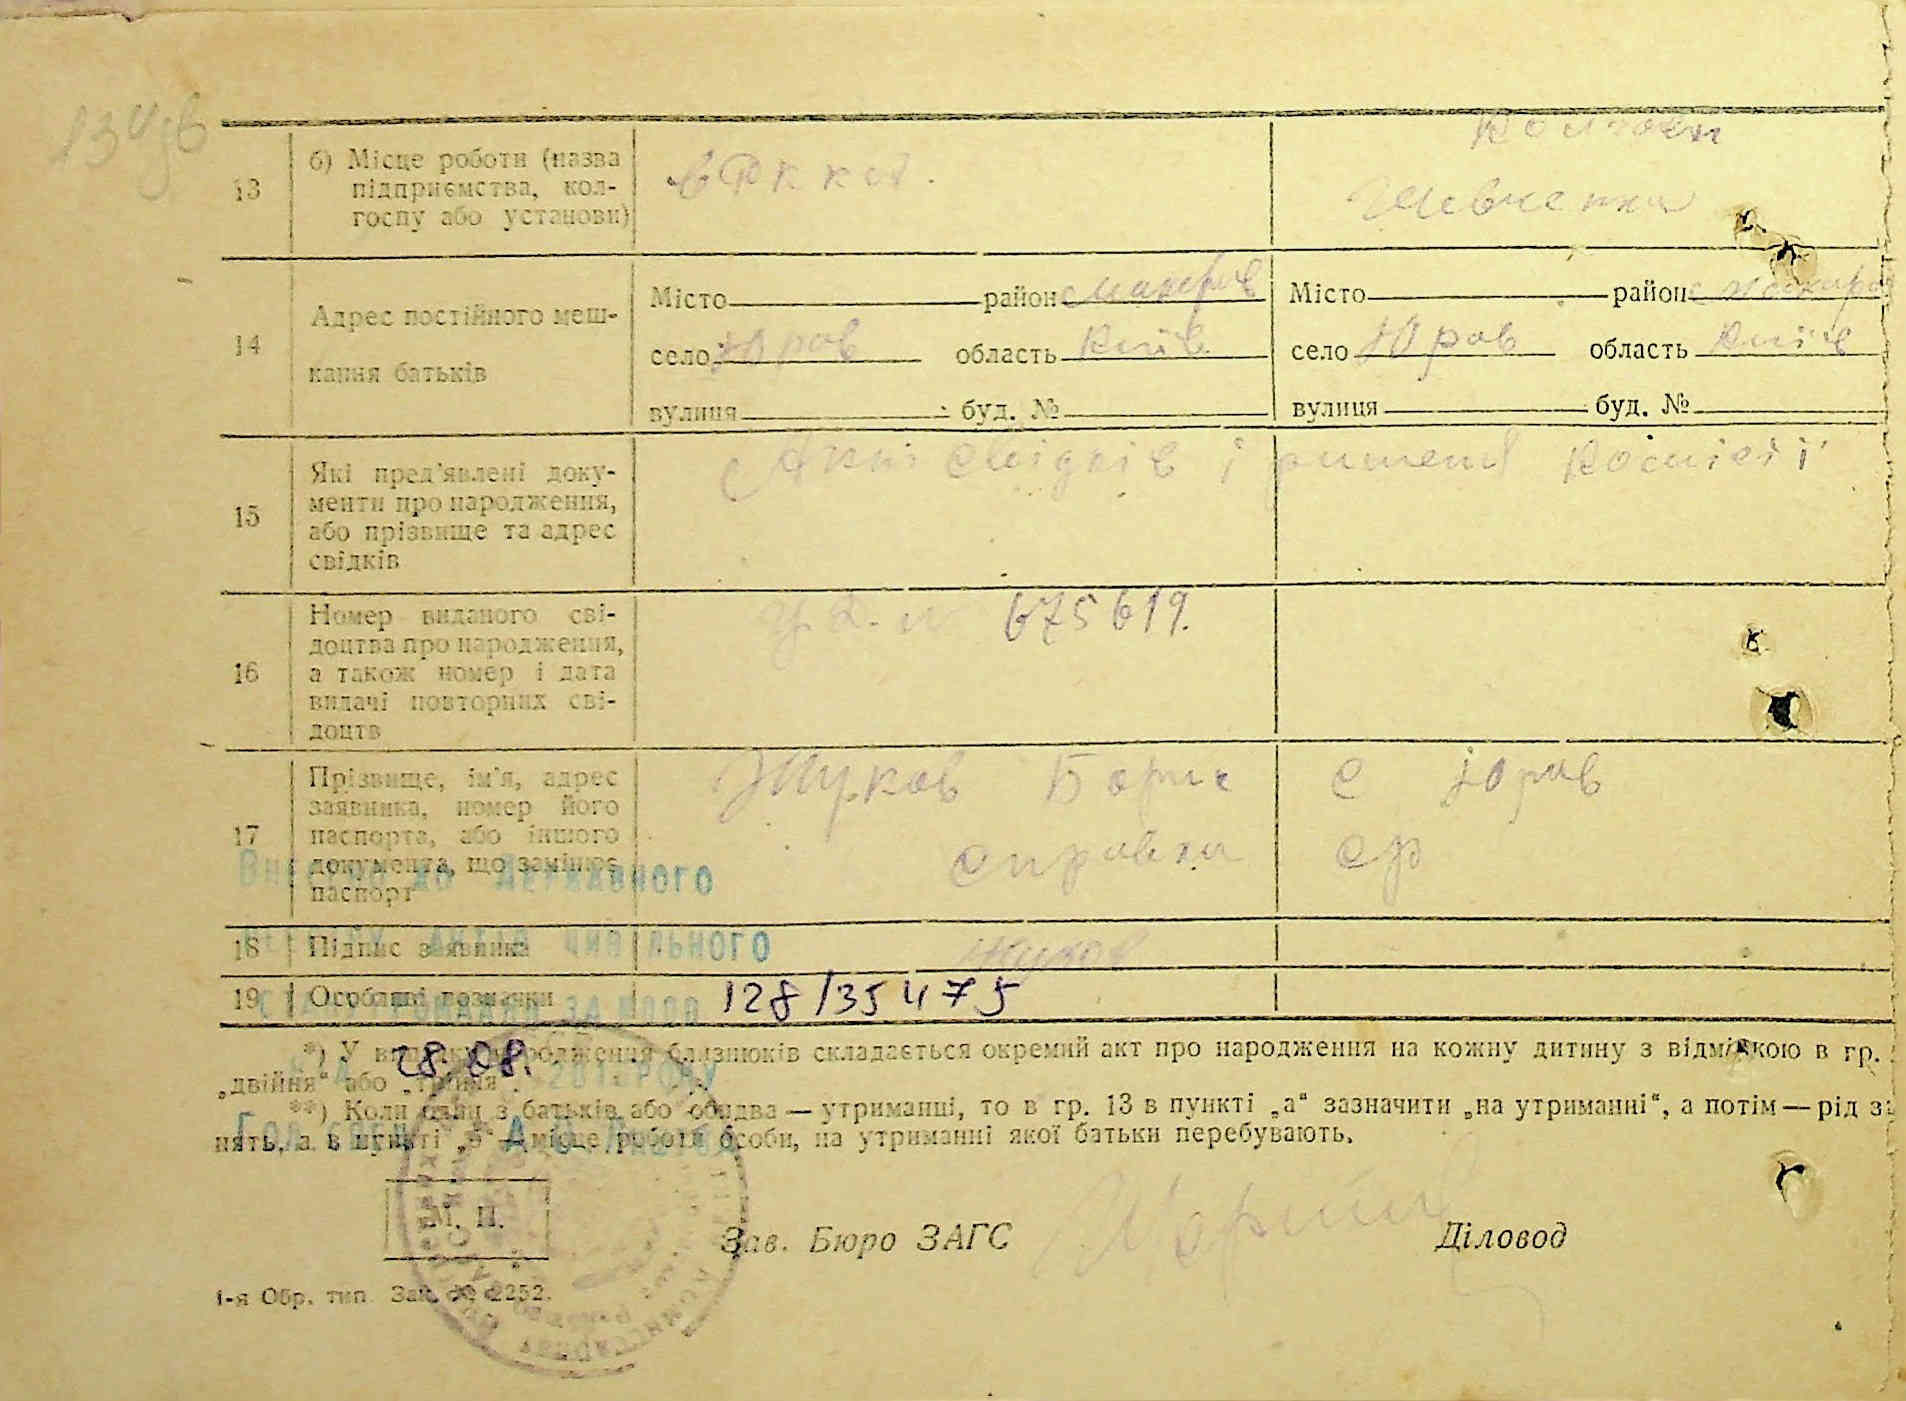 13
б) Місце роботи (назва
підприємства, кол-
госпу або установи)
в РККА.
Колгосп
Шевченка
14
Адрес постійного меш-
кання батьків
Місто район Макарів
село Юрів область Київ
вулиця буд. №
Місто район Макарів
село Юрів область Київ
вулиця буд. №
15
Які пред'явлені доку-
менти про народження,
або прізвище та адрес
свідків
свідків і комісії
16
Номер виданого сві-
доцтва про народження,
а також номер і дата
видачі повторних сві-
доцтв
675619.
17
Прізвище, ім'я, адрес
заявника, номер його
паспорта, або іншого
документа, що замінює
паспорт
Жуков Борис с Юрів
справка ср
18
Підпис заявника
Жуков
19
Особливі позначки
128/35475
28.08.
*) У випадку народження близнюків складається окремий акт про народження на кожну дитину з відміткою в гр.
„двійня“ або „трійня“.
**) Коли один з батьків або обидва — утриманці, то в гр. 13 в пункті „а“ зазначити „на утриманні“, а потім — рід за
нять, а в пункті „б“ — місце роботи особи, на утриманні якої батьки перебувають.
М. П.
Зав. Бюро ЗАГС
Діловод
1-я Обр. тип. Зак. № 2252.